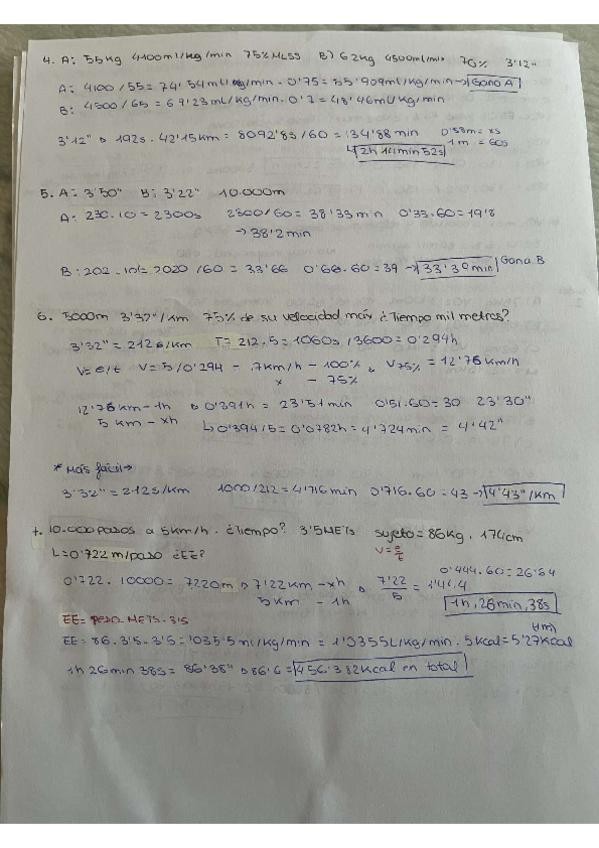 4. A: 55kg 4100ml/kg/min 75% MLSS B) 62kg 4500ml/min 70% 3'12"
A: 4100/55=74'54ml/kg/min·0'75=55'909ml/kg/min→ Gana A
B: 4500/65=69'23ml/kg/min·0'7=48'46ml/kg/min
3'12" → 192s·42'15km=8092'8s/60=134'88min 0'88m=xs
1m = 60s
↳ 2h 14min 52s
5. A: 3'50" B: 3'22" 10.000m
A: 230·10=2300s 2300/60=38'33min 0'33·60=19'8
→ 38'2min
B: 202·10=2020/60=33'66 0'66·60=39 → 33'39min Gana B
6. 5000m 3'32"/km 75% de su velocidad max ¿Tiempo mil metros?
3'32"=212s/km T=212·5=1060s/3600=0'294h
V=e/t V=5/0'294 - 17km/h - 100% → V75%=12'76km/h
x - 75%
12'76km-1h → 0'391h=23'51min 0'51·60=30 23'30"
5km-xh ↳ 0'394/5=0'0782h=4'724min=4'42"
*Más fácil→
3'32"=212s/km 1000/212=4'716min 0'716·60=43 → 4'43"/km
7. 10.000 pasos a 5km/h. ¿Tiempo? 3'5METs sujeto=86kg. 174cm
L=0'722m/paso ¿EE? V=e/t
0'722·10000=7220m → 7'22km-xh → 7'22/5=1'444 0'444·60=26'64
5km - 1h
1h, 26min, 38s
EE= peso·METS·3'5
EE=86·3'5·3'5=1'0355ml/kg/min=1'0355L/kg/min·5kcal=5'27kcal
1h 26min 38s=86'38" → 86'6= 456'382kcal en total